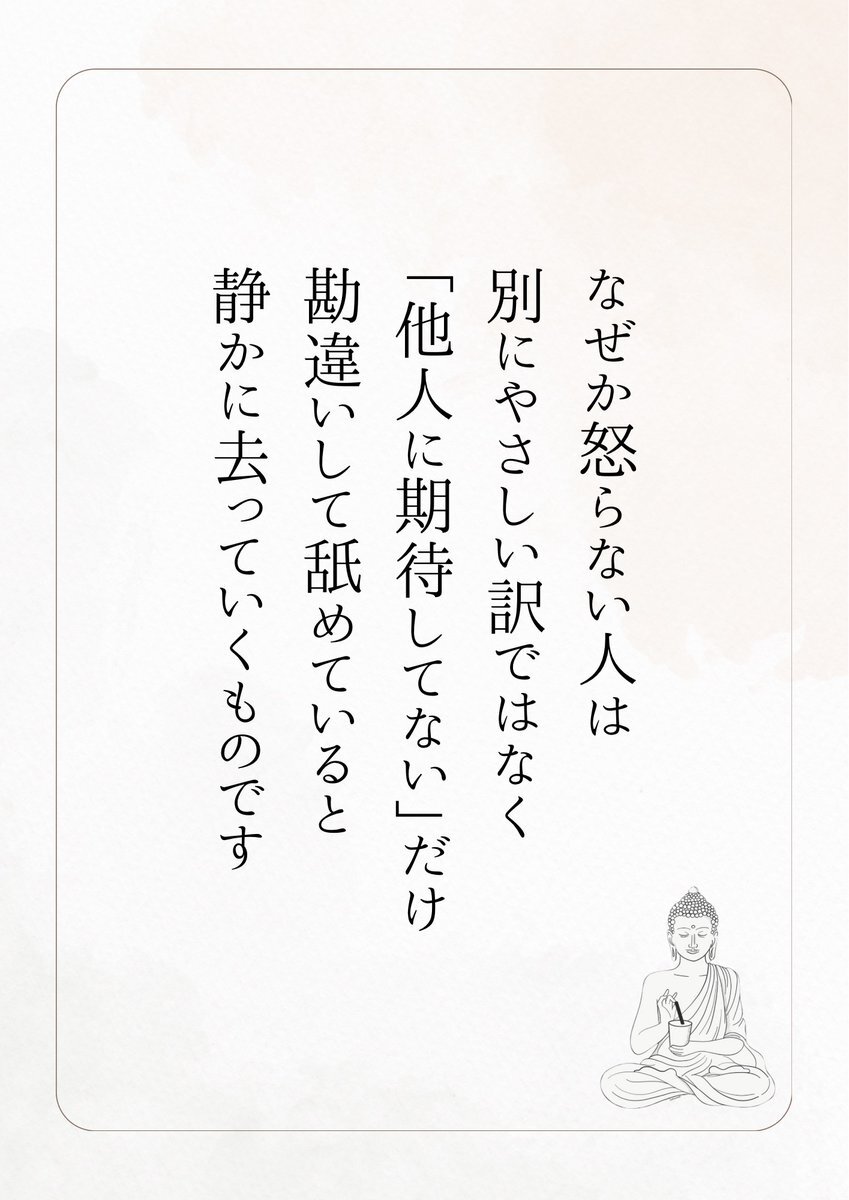 なぜか怒らない人は
別にやさしい訳ではなく
「他人に期待してない」だけ
勘違いして舐めていると
静かに去っていくものです